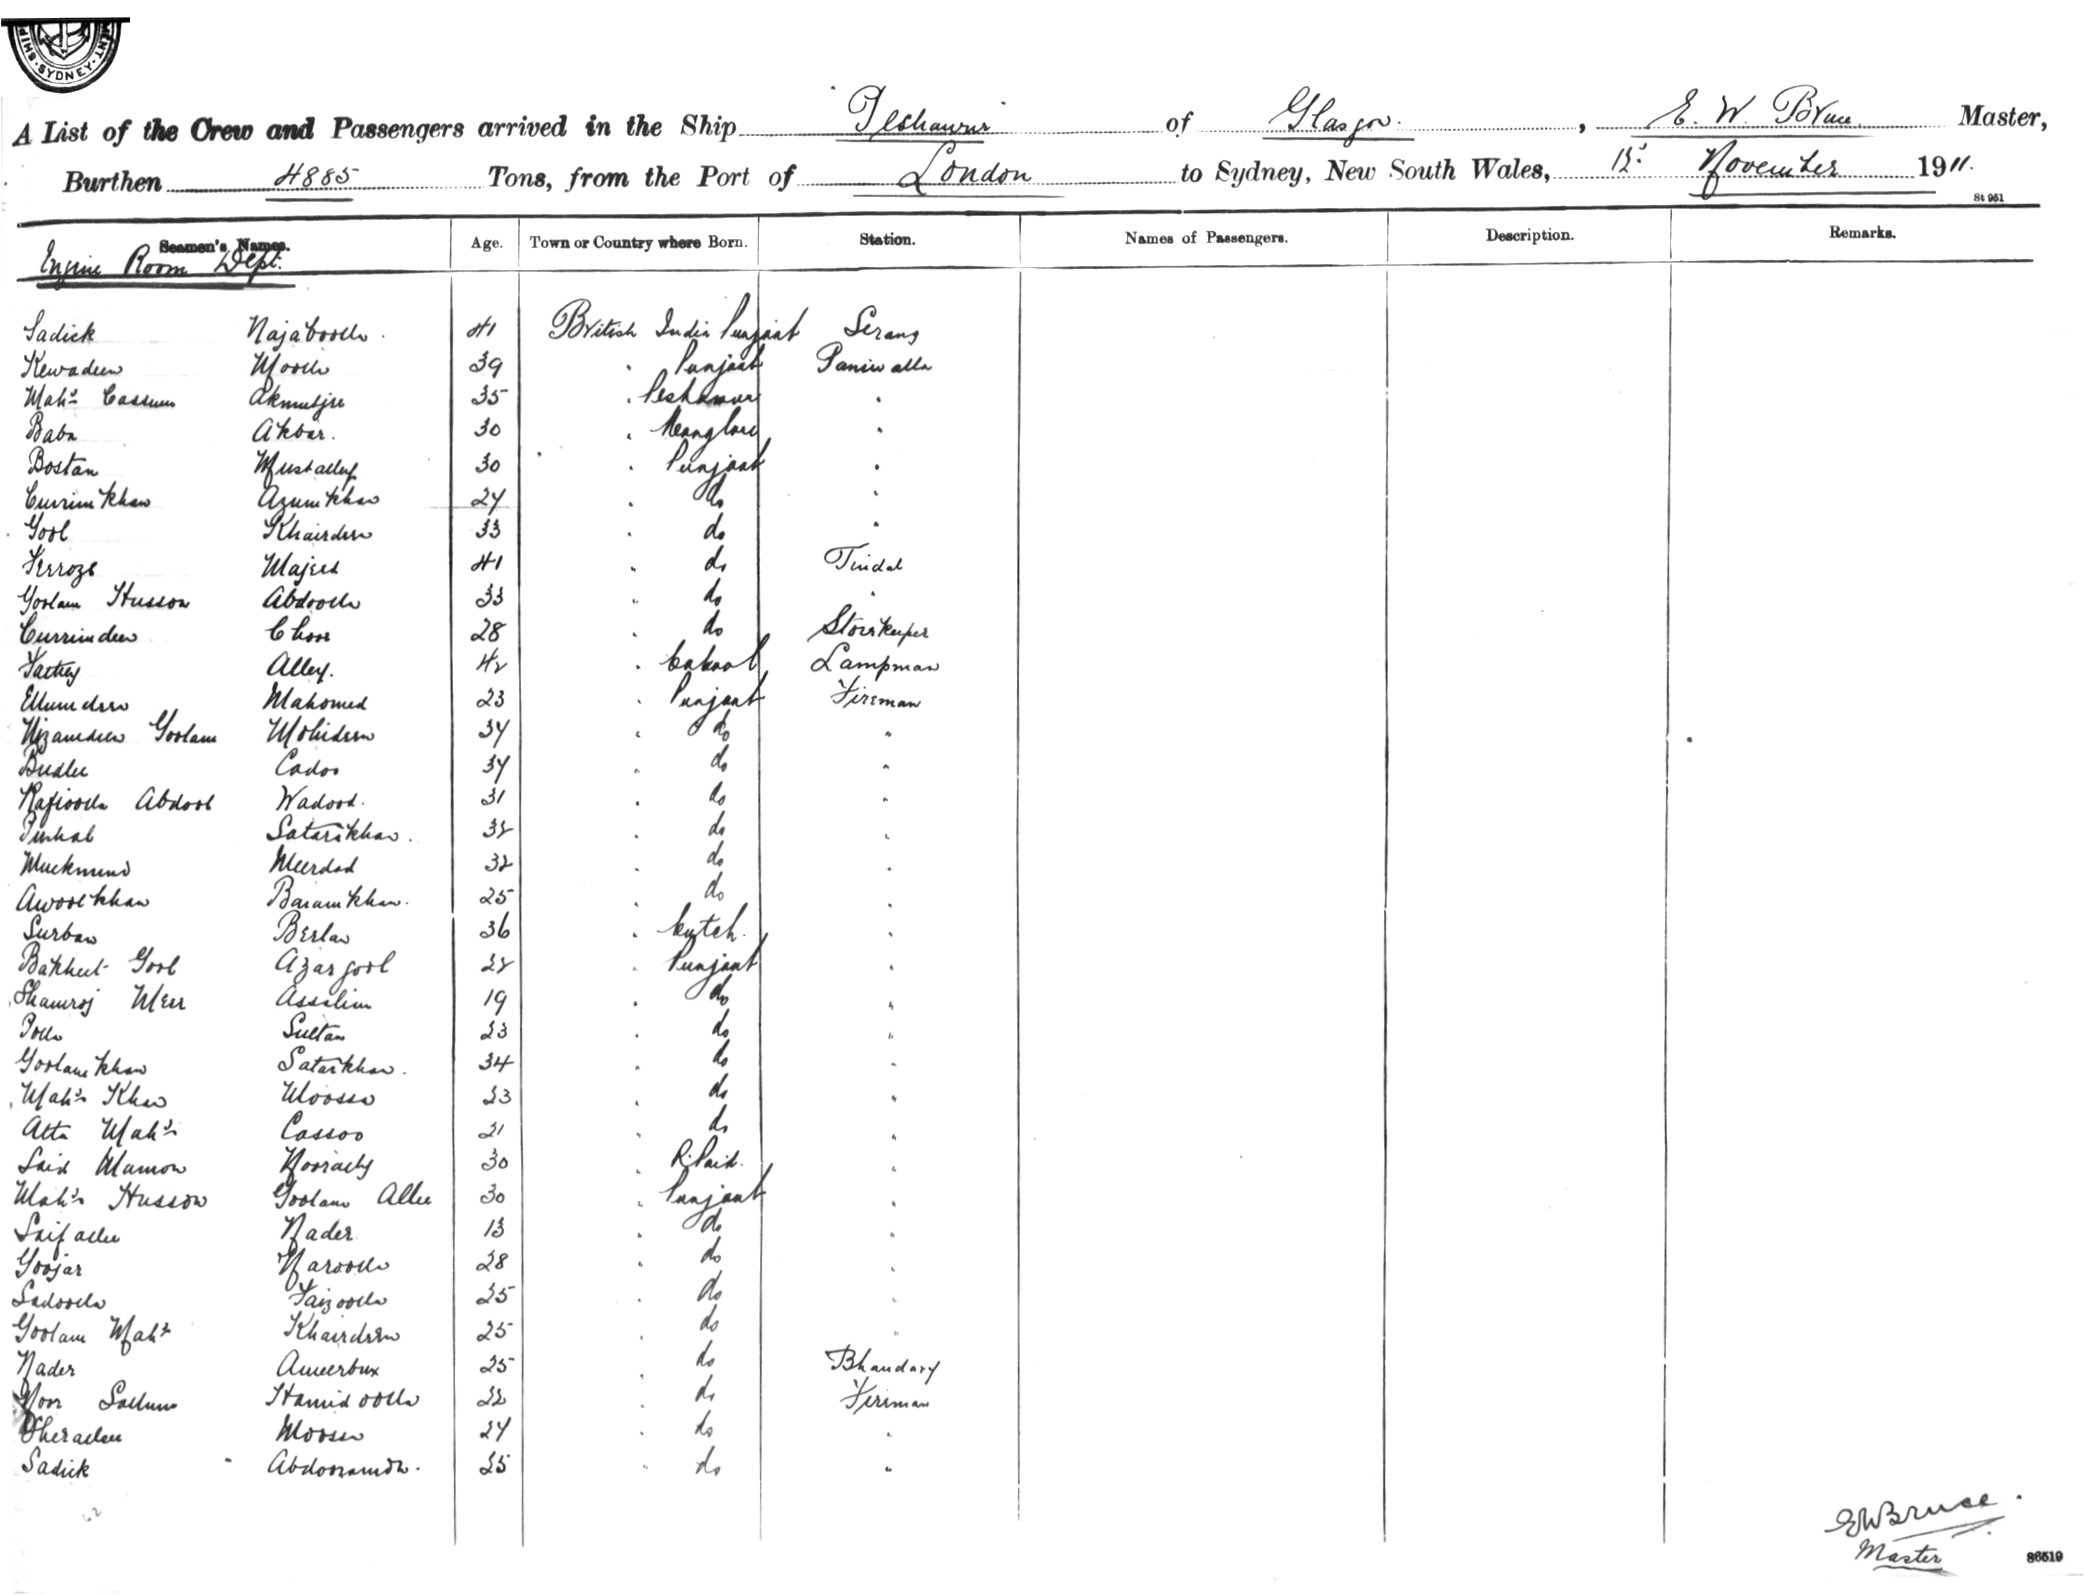 SYDNEY
A List of the Crew and Passengers arrived in the Ship Peshawur of Glasgow, E. W. Bruce Master,
Burthen 4885 Tons, from the Port of London to Sydney, New South Wales, November 1911.
St 951
Seamen's Names. Age. Town or Country where Born. Station. Names of Passengers. Description. Remarks.
Engine Room Dept.
Sadick Najaboolla 41 British India Punjaub Serang
Kewadeen Moolla 39 " Punjaub Paniwalla
Mahd Cassum 35 " Peshawur "
Baba Akbar 30 " Manglore "
Bostan Mustalley 30 " Punjaub "
Currimkhan Azumkhan 24 " do "
Gool Khairdeen 33 " do "
Ferroze Majeed 41 " do Tindal
Goolam Husson Abdoolla 33 " do "
Currimdeen Choor 28 " do Storekeeper
Fattey Alley. 42 " Cabool Lampman
Ellumdeen Mahomed 23 " Punjaub Fireman
Nizamdeen Goolam Mohideen 34 " do "
Budlee Cadoo 34 " do "
Rafioolla Abdool Wadood. 31 " do "
Satarkhan. 32 " do "
Muckmund Meerdad 32 " do "
Awoolkhan Baramkhan. 25 " do "
Surban Berlan 36 " Kutch. "
Bakheet Gool Azargool 22 " Punjaub "
Shamroj Meer Assalim 19 " do "
Sultan 23 " do "
Goolamkhan Satarkhan. 34 " do "
Mahd Khan Moossa 23 " do "
Atta Mahd Cassoo 21 " do "
Said Mamon Nooraley 30 " "
Mahd Husson Goolam Allee 30 " Punjaub "
Saifallee Nader 23 " do "
Goojar Naroolla 28 " do "
Sadoolla Faizoolla 25 " do "
Goolam Mahd Khairdeen 25 " do "
Nader Ameerbux 25 " do Bhandary
Noor Sallum Hamidoolla 22 " do Fireman
Sherallee Moossa 24 " do "
Sadick Abdooramon. 25 " do "
EWBruce.
Master
86519